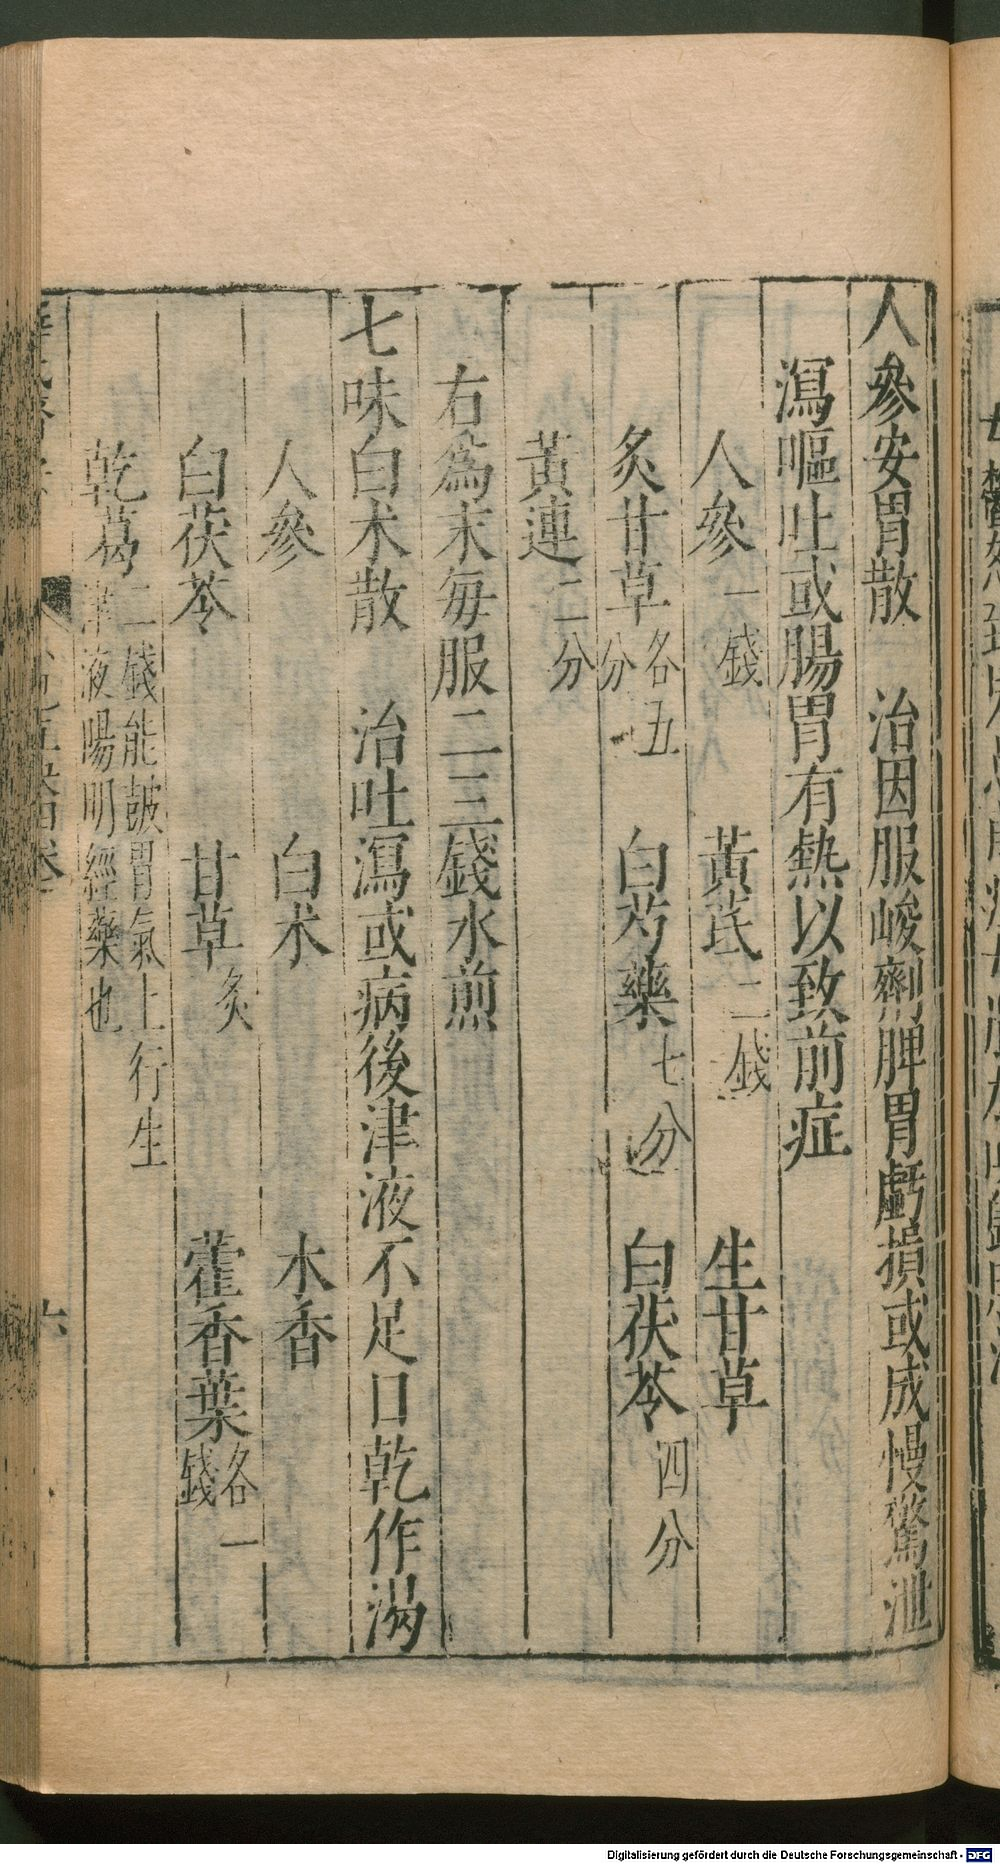 人參安胃散 治因服峻劑脾胃虧損或成慢驚泄
瀉嘔吐或腸胃有熱以致前症
人參一錢 黃芪二錢 生甘草
炙甘草各五分 白芍藥七分 白茯苓四分
黃連二分
右為末每服二三錢水煎
七味白朮散 治吐瀉或病後津液不足口乾作渴
人參 白朮 木香
白茯苓 甘草炙 藿香葉各一錢
乾葛二錢能皷胃氣上行生津液陽明經藥也
六
Digitalisierung gefördert durch die Deutsche Forschungsgemeinschaft - DFG